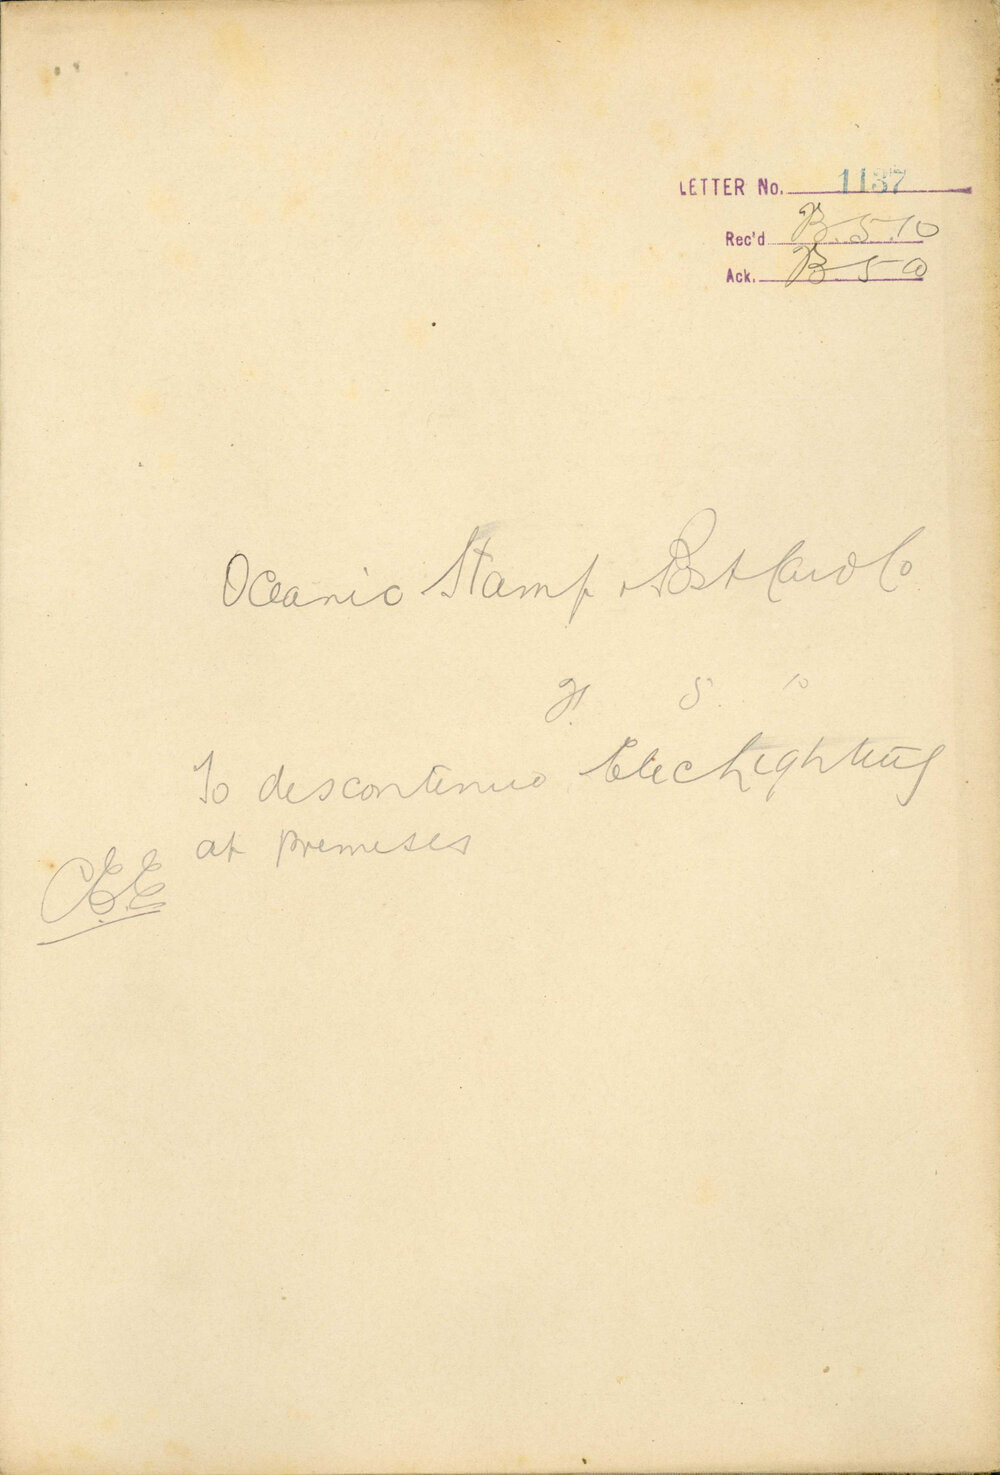 LETTER No. 1137
Rec'd 13.5.10
Ack. 13 5 10
Oceanic Stamp & Post Card Co
5. 10
To descontinue Elec Lighting
at premeses
C.E.E